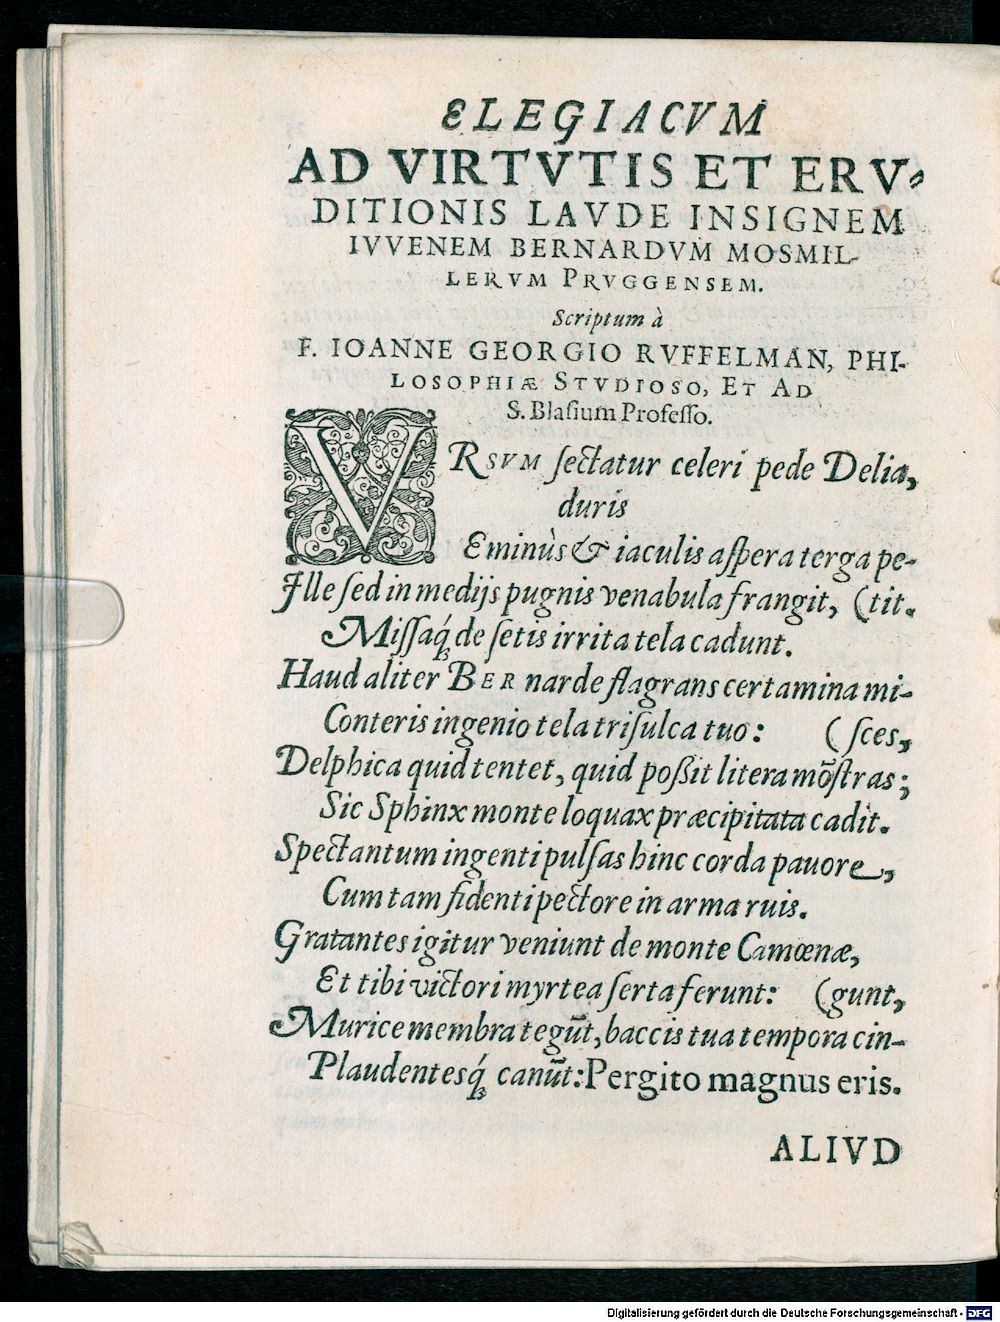 ELEGIACVM
AD VIRTVTIS ET ERV-
DITIONIS LAVDE INSIGNEM
IVVENEM BERNARDVM MOSMIL-
LERVM PRVGGENSEM.
Scriptum à
F. IOANNE GEORGIO RVFFELMAN, PHI-
LOSOPHIÆ STVDIOSO, ET AD
S. Blasium Professo.
VRSVM sectatur celeri pede Delia,
duris
Eminùs & iaculis aspera terga pe-
Ille sed in medijs pugnis venabula frangit, (tit.
Missaq́; de setis irrita tela cadunt.
Haud aliter BERnarde flagrans certamina mi-
Conteris ingenio tela trisulca tuo: (sces,
Delphica quid tentet, quid possit litera mõstras;
Sic Sphinx monte loquax præcipitata cadit.
Spectantum ingenti pulsas hinc corda pauore,
Cum tam fidenti pectore in arma ruis.
Gratantes igitur veniunt de monte Camœnæ,
Et tibi victori myrtea serta ferunt: (gunt,
Murice membra tegũt, baccis tua tempora cin-
Plaudentesq́; canũt: Pergito magnus eris.
ALIVD
Digitalisierung gefördert durch die Deutsche Forschungsgemeinschaft - DFG